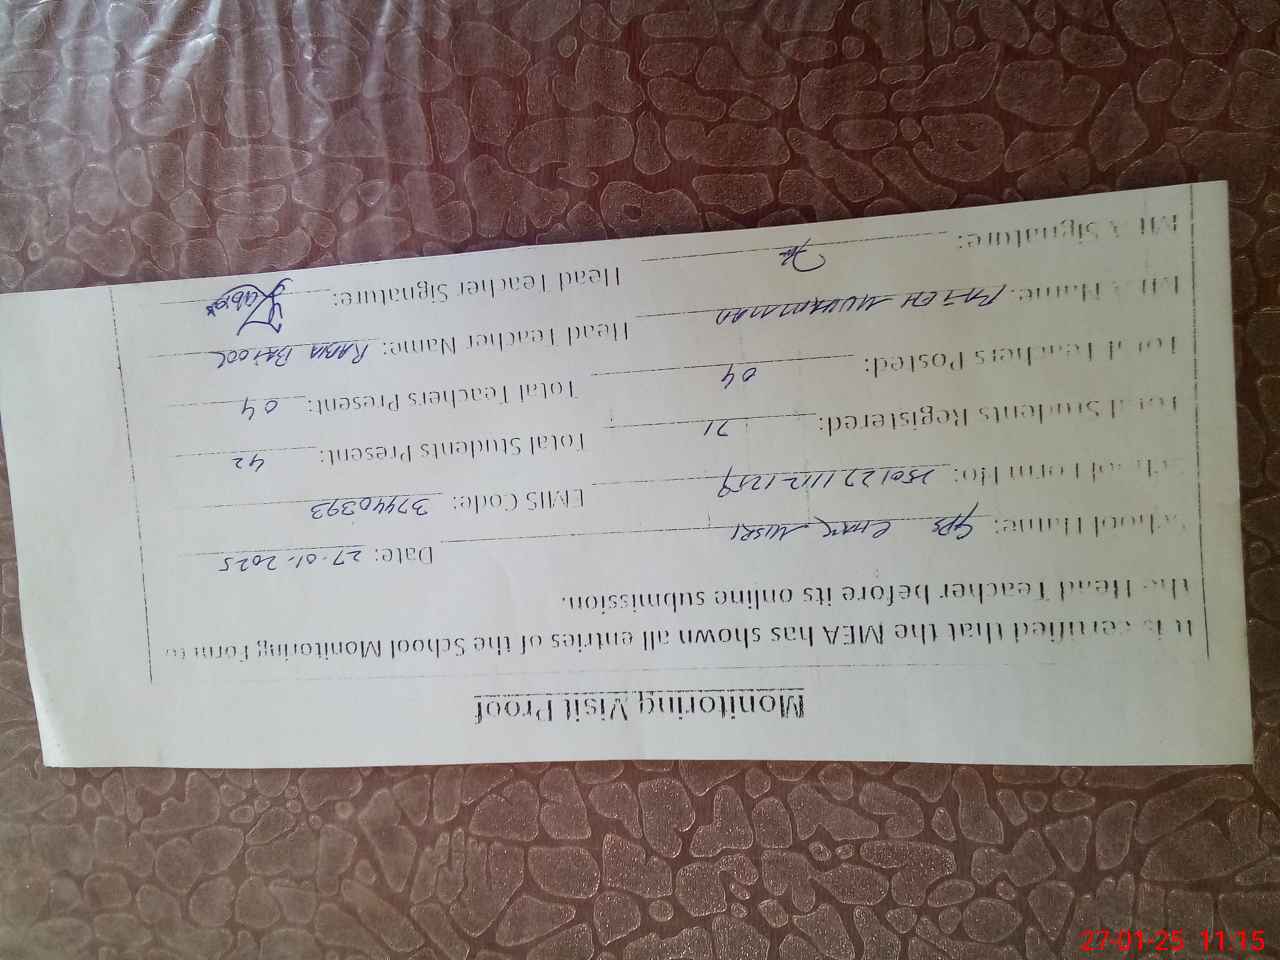 Monitoring Visit Proof
It is certified that the MEA has shown all entries of the School Monitoring Form to
the Head Teacher before its online submission.
School Name: GPS CHAK MISRI Date: 27-01-2025
School Form No: EMIS Code: 37440393
Total Students Registered: 71 Total Students Present: 42
Total Teachers Posted: 04 Total Teachers Present: 04
MEA Name: MUHAMMAD Head Teacher Name: RABIA BATOOL
MEA Signature: Head Teacher Signature: Rabia
27-01-25 11:15